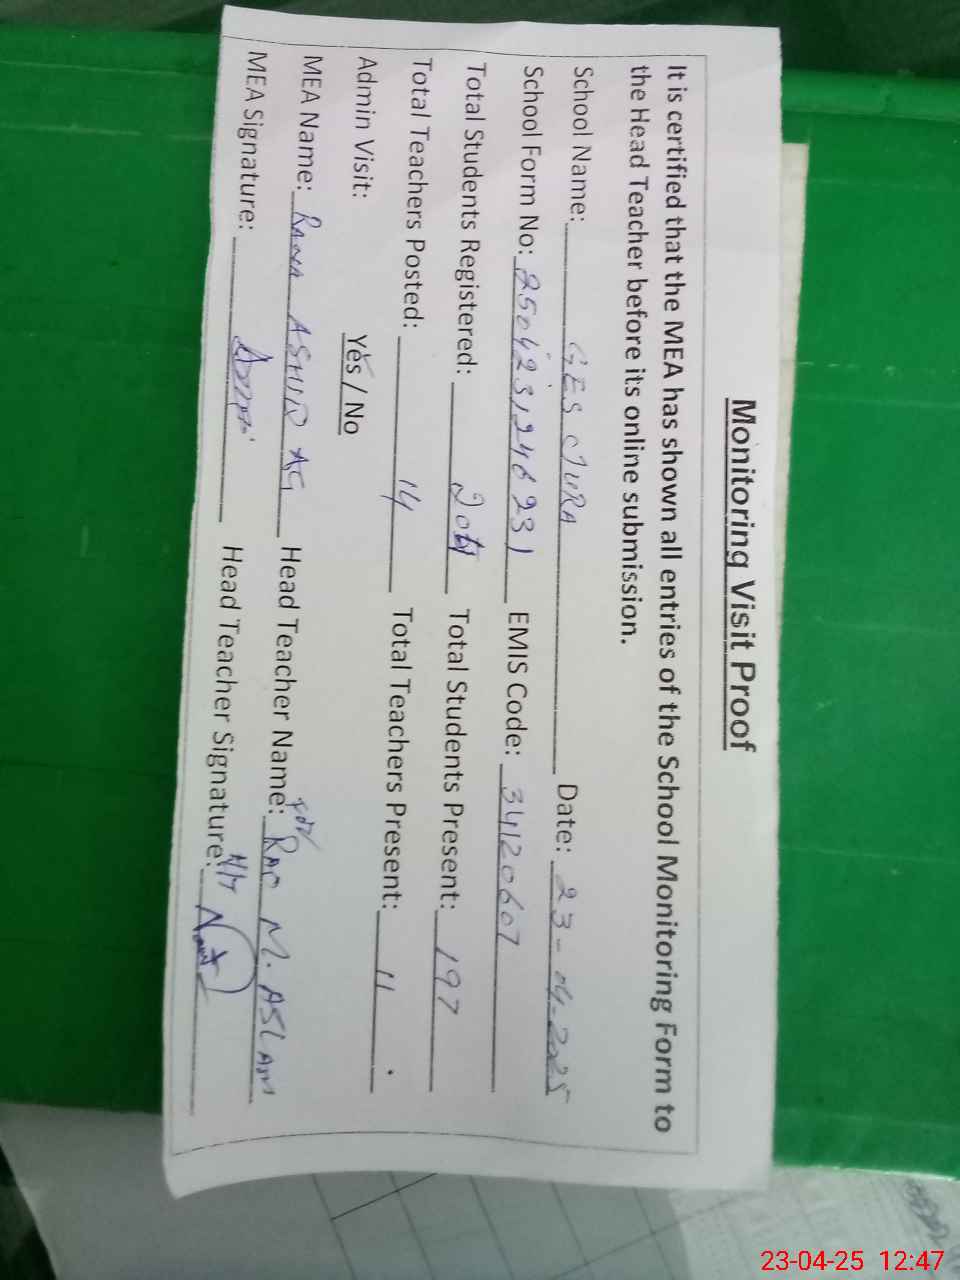 Monitoring Visit Proof
It is certified that the MEA has shown all entries of the School Monitoring Form to
the Head Teacher before its online submission.
School Name: GES JURA Date: 23-04-2025
School Form No: 2504231246231 EMIS Code: 34120607
Total Students Registered: Total Students Present: 197
Total Teachers Posted: 14 Total Teachers Present: 11
Admin Visit: Yes / No
MEA Name: RANA ASHIQ Head Teacher Name: For RAO M. ASLAM
MEA Signature: Head Teacher Signature:
23-04-25 12:47